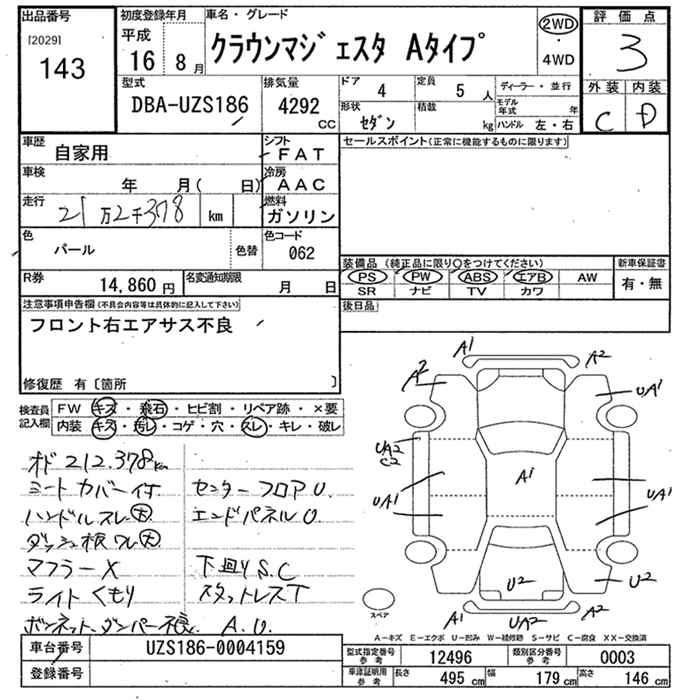 出品番号
[2029]
143
初度登録年月
平成
16年 8月
車名・グレード
クラウンマジェスタ Aタイプ
2WD
・
4WD
評価点
3
外装 内装
C D
型式
DBA-UZS186
排気量
4292 CC
ドア 4
定員 5 人
形状 セダン
積載 kg
ディーラー・並行
モデル年式 年
ハンドル 左・右
車歴
自家用
シフト
FAT
車検
年 月( 日)
冷房
AAC
走行
21万2千378 km
燃料
ガソリン
色
パール
色替
色コード
062
R券
14,860 円
名変通知期限
月 日
セールスポイント(正常に機能するものに限ります)
装備品(純正品に限り○をつけてください)
PS PW ABS エアB AW
SR ナビ TV カワ
新車保証書
有・無
後日品
注意事項申告欄(不具合内容等は具体的に記入して下さい)
フロント右エアサス不良
修復歴 有〔箇所 〕
検査員記入欄
FW キズ・飛石・ヒビ割・リペア跡・×要
内装 キズ・汚レ・コゲ・穴・スレ・キレ・破レ
オド 212.378km
シートカバー付 センターフロアU.
ハンドルスレ大 エンドパネルU.
ダッシュ板ワレ大
マフラーX 下廻りS.C
ライトくもり スタットレスT
ボンネットダンパー不良 A.U.
A1
A2 A2
UA1
UA2
C2
A1
UA1 UA1
U2 U2
A1 UA2 A1
スペア
A－キズ E－エクボ U－凹み W－補修跡 S－サビ C－腐食 XX－交換済
車台番号 UZS186-0004159
登録番号
型式指定番号 参考 12496
類別区分番号 参考 0003
車庫証明用 参考 長さ 495 cm 幅 179 cm 高さ 146 cm